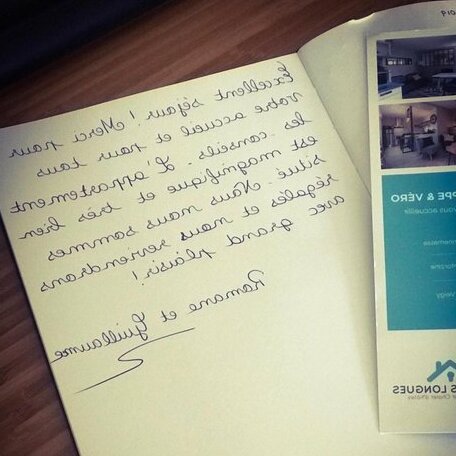 Excellent séjour! Merci pour
votre accueil et pour tous
les conseils. L'appartement
est magnifique et très bien
situé. Nous nous sommes
régalés et nous reviendrons
avec grand plaisir!
Romane et Guillaume
PPE & VÉRO
vous accueille
S LONGUES